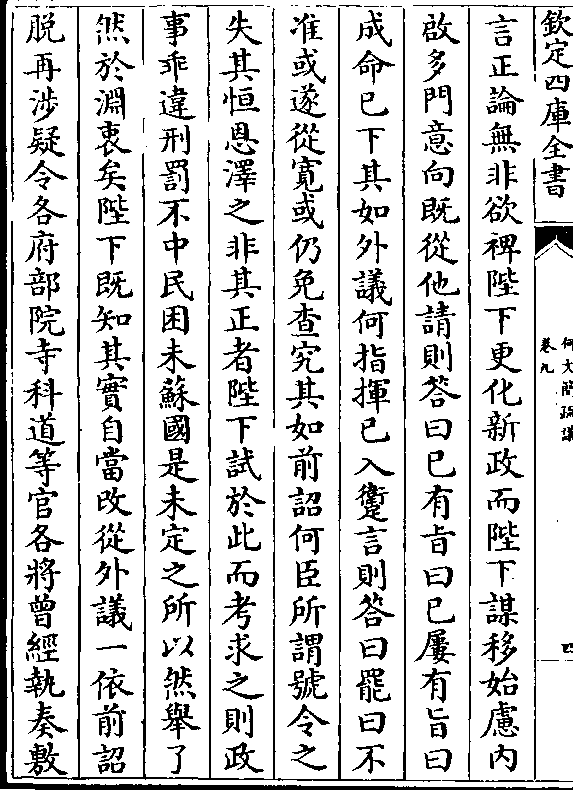 欽定四庫全書
何文簡疏議
卷九
四
言正論無非欲裨陛下更化新政而陛下謀移始慮內
啟多門意向既從他請則答曰已有旨曰已屢有旨曰
成命已下其如外議何指揮已入躗言則答曰罷曰不
准或遂從寬或仍免查究其如前詔何臣所謂號令之
失其恒恩澤之非其正者陛下試於此而考求之則政
事乖違刑罰不中民困未蘇國是未定之所以然舉了
然於淵衷矣陛下既知其實自當改從外議一依前詔
脫再涉疑令各府部院寺科道等官各將曾經執奏敷